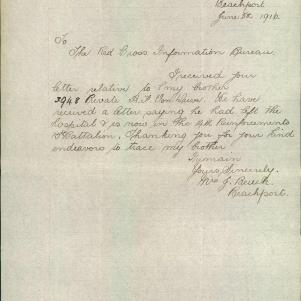 Beachport
June 5th 1916
To
The Red Cross Information Bureau.
I received your
letter relative to my brother
3948 Private A.F. We have
received a letter saying he had left the
hospital & is now in the 9th Reinforcements
Battalion. Thanking you for your kind
endeavors to trace my brother
I remain
Yours Sincerely.
Mrs J.
Beachport.